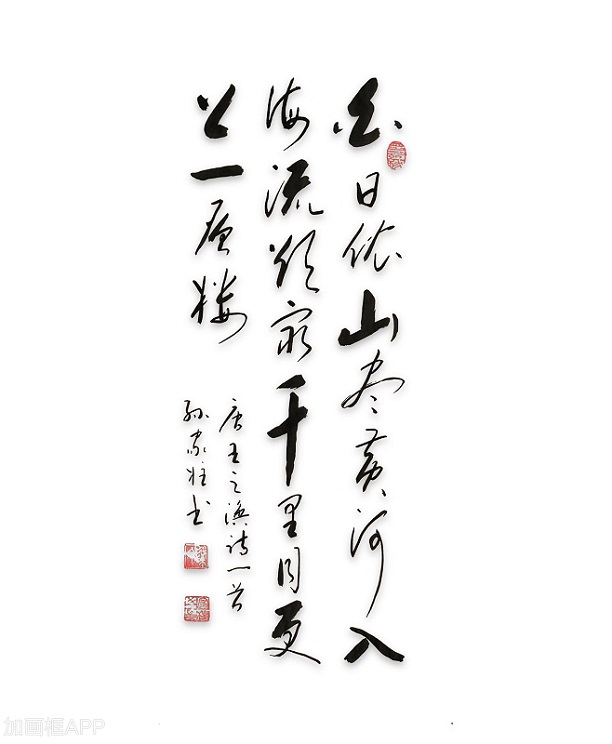 白日依山尽黄河入
海流欲穷千里目更
上一层楼
唐王之涣诗一首
孙家书
加画框APP